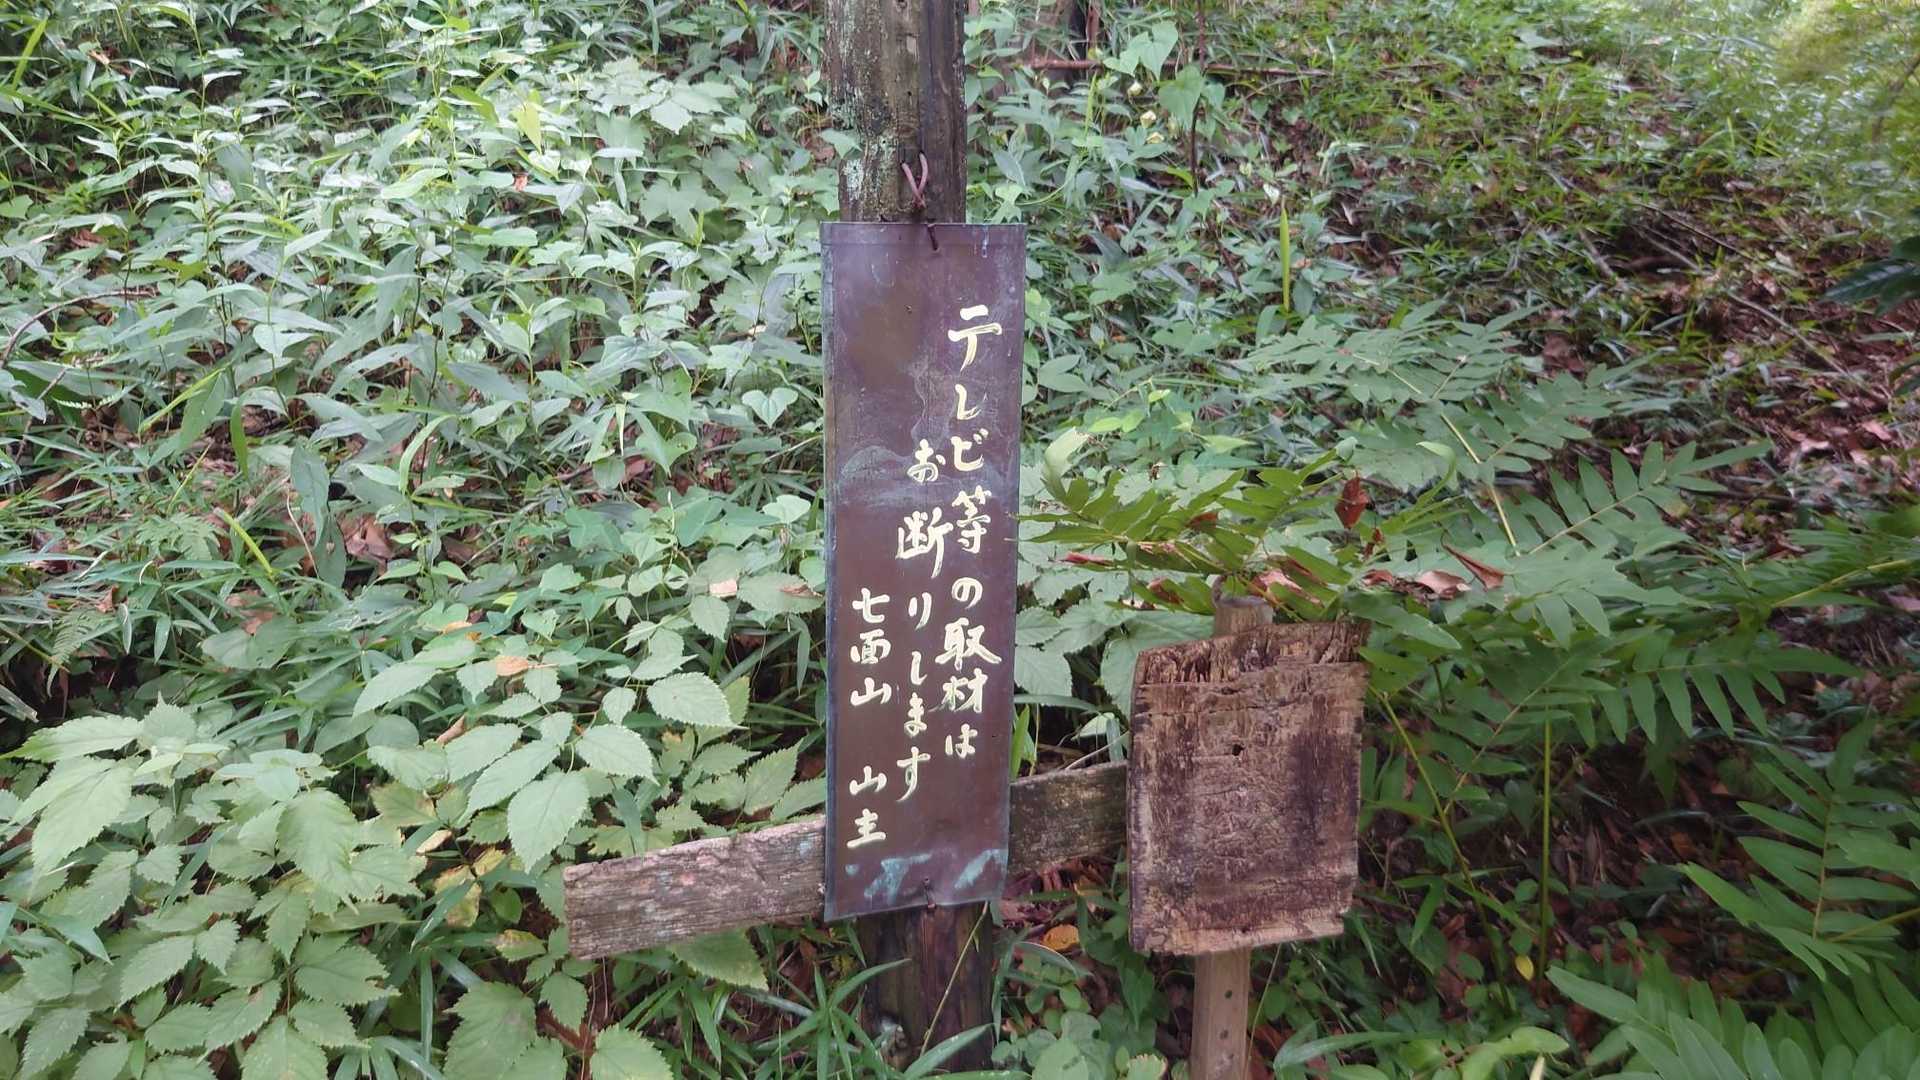 テレビ等の取材は
お断りします
七面山 山主